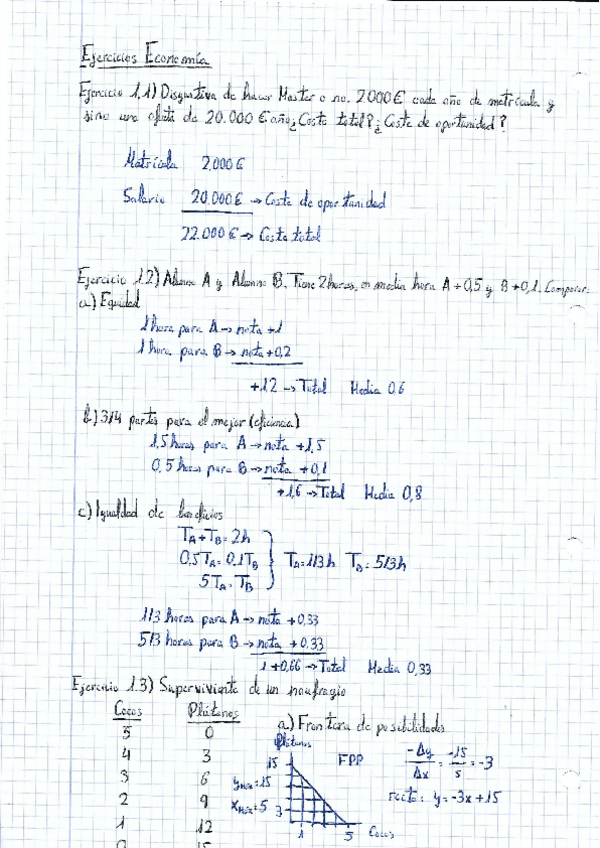 Ejercicios Economía
Ejercicio 1.1) Disyuntiva de hacer Master o no. 2000€ cada año de matrícula y
sino una oferta de 20.000 € año ¿Coste total? ¿Coste de oportunidad?
Matrícula 2,000€
Salario 20.000€ → Coste de oportunidad
22.000€ → Coste total
Ejercicio 1.2) Alumno A y Alumno B. Tiene 2 horas, en media hora A +0,5 y B +0,1. Comparar:
a) Equidad
1 hora para A → nota +1
1 hora para B → nota +0,2
+1.2 → Total Media 0.6
b) 3/4 partes para el mejor (eficiencia)
1,5 horas para A → nota +1,5
0,5 horas para B → nota +0,1
+1,6 → Total Media 0,8
c) Igualdad de beneficios
TA + TB = 2h
0.5TA = 0.1TB } TA = 1/3h TB = 5/3h
5TA = TB
1/3 horas para A → nota +0,33
5/3 horas para B → nota +0.33
+0,66 → Total Media 0,33
Ejercicio 1.3) Superviviente de un naufragio
Cocos Plátanos a) Frontera de posibilidades
5 0
4 3
3 6
2 9
1 12
0 15
Plátanos
15 FPP
ymax = 15
xmax = 5 3
1 5 Cocos
-Δy/Δx = -15/5 = -3
recta: y = -3x + 15